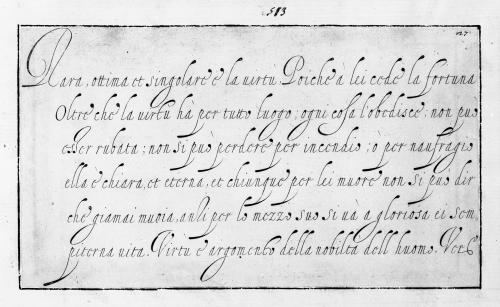 513
27
Rara, ottima et singolare è la virtù. Poiche à lei cede la fortuna
Oltre che la virtu ha per tutto luogo; ogni cosa l'obedisce; non può
esser rubata; non si può perdere per incendio; o per naufragio
ella è chiara, et eterna, et chiunque per lei muore non si può dir
che giamai muoia, anzi per lo mezzo suo si và a gloriosa, et sem
piterna uita. Virtu è argomento della nobiltà dell huomo.